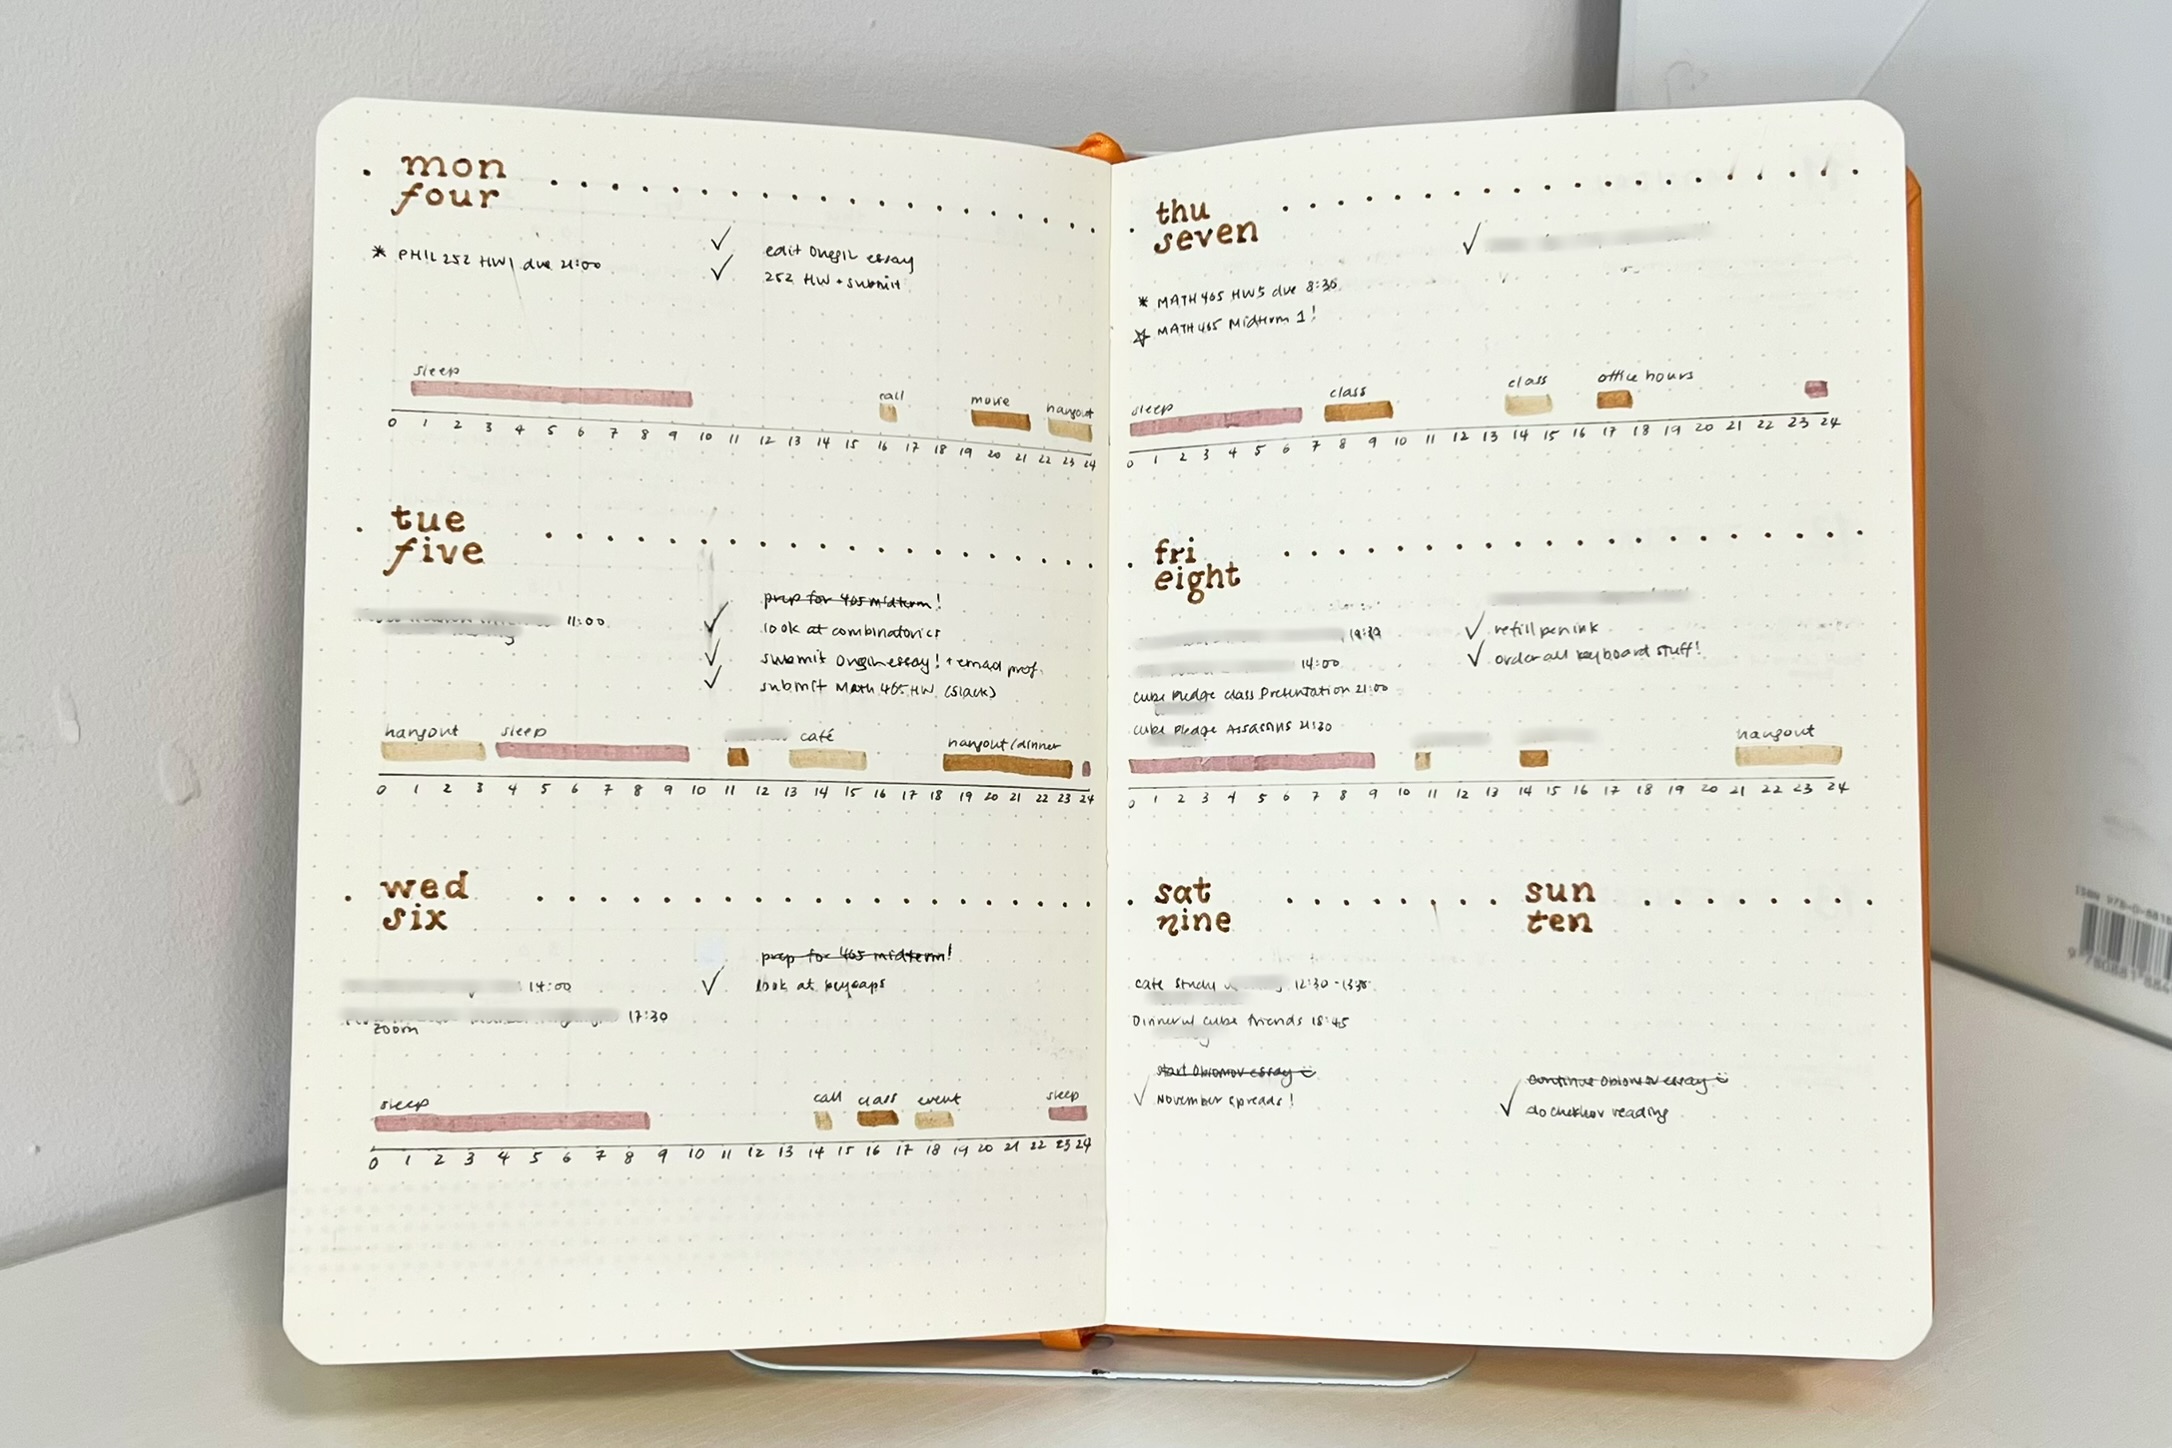 mon
four
* PHIL 252 HW1 due 21:00
✓ edit Onegin essay
✓ 252 HW + submit
sleep
call
movie
hangout
0 1 2 3 4 5 6 7 8 9 10 11 12 13 14 15 16 17 18 19 20 21 22 23 24
tue
five
11:00
prep for 465 midterm!
✓ look at combinatorics
✓ submit Onegin essay! + email prof.
✓ submit Math 465 HW (Slack)
hangout
sleep
café
hangout/dinner
0 1 2 3 4 5 6 7 8 9 10 11 12 13 14 15 16 17 18 19 20 21 22 23 24
wed
six
14:00
17:30
zoom
prep for 465 midterm!
✓ look at keycaps
sleep
call
class
event
sleep
0 1 2 3 4 5 6 7 8 9 10 11 12 13 14 15 16 17 18 19 20 21 22 23 24
thu
seven
✓
* MATH 465 HW5 due 8:30
☆ MATH 465 Midterm 1!
sleep
class
class
office hours
0 1 2 3 4 5 6 7 8 9 10 11 12 13 14 15 16 17 18 19 20 21 22 23 24
fri
eight
14:00
Cube Pledge class Presentation 21:00
Cube Pledge Assassins 21:30
✓ refill pen ink
✓ order all keyboard stuff!
hangout
0 1 2 3 4 5 6 7 8 9 10 11 12 13 14 15 16 17 18 19 20 21 22 23 24
sat
nine
cafe study 12:30 -
Dinner w/ cube friends 18:45
start Oblomov essay
✓ November spreads!
sun
ten
continue Oblomov essay
✓ do chekhov reading
ISBN 978-0-8818
9 780881 884